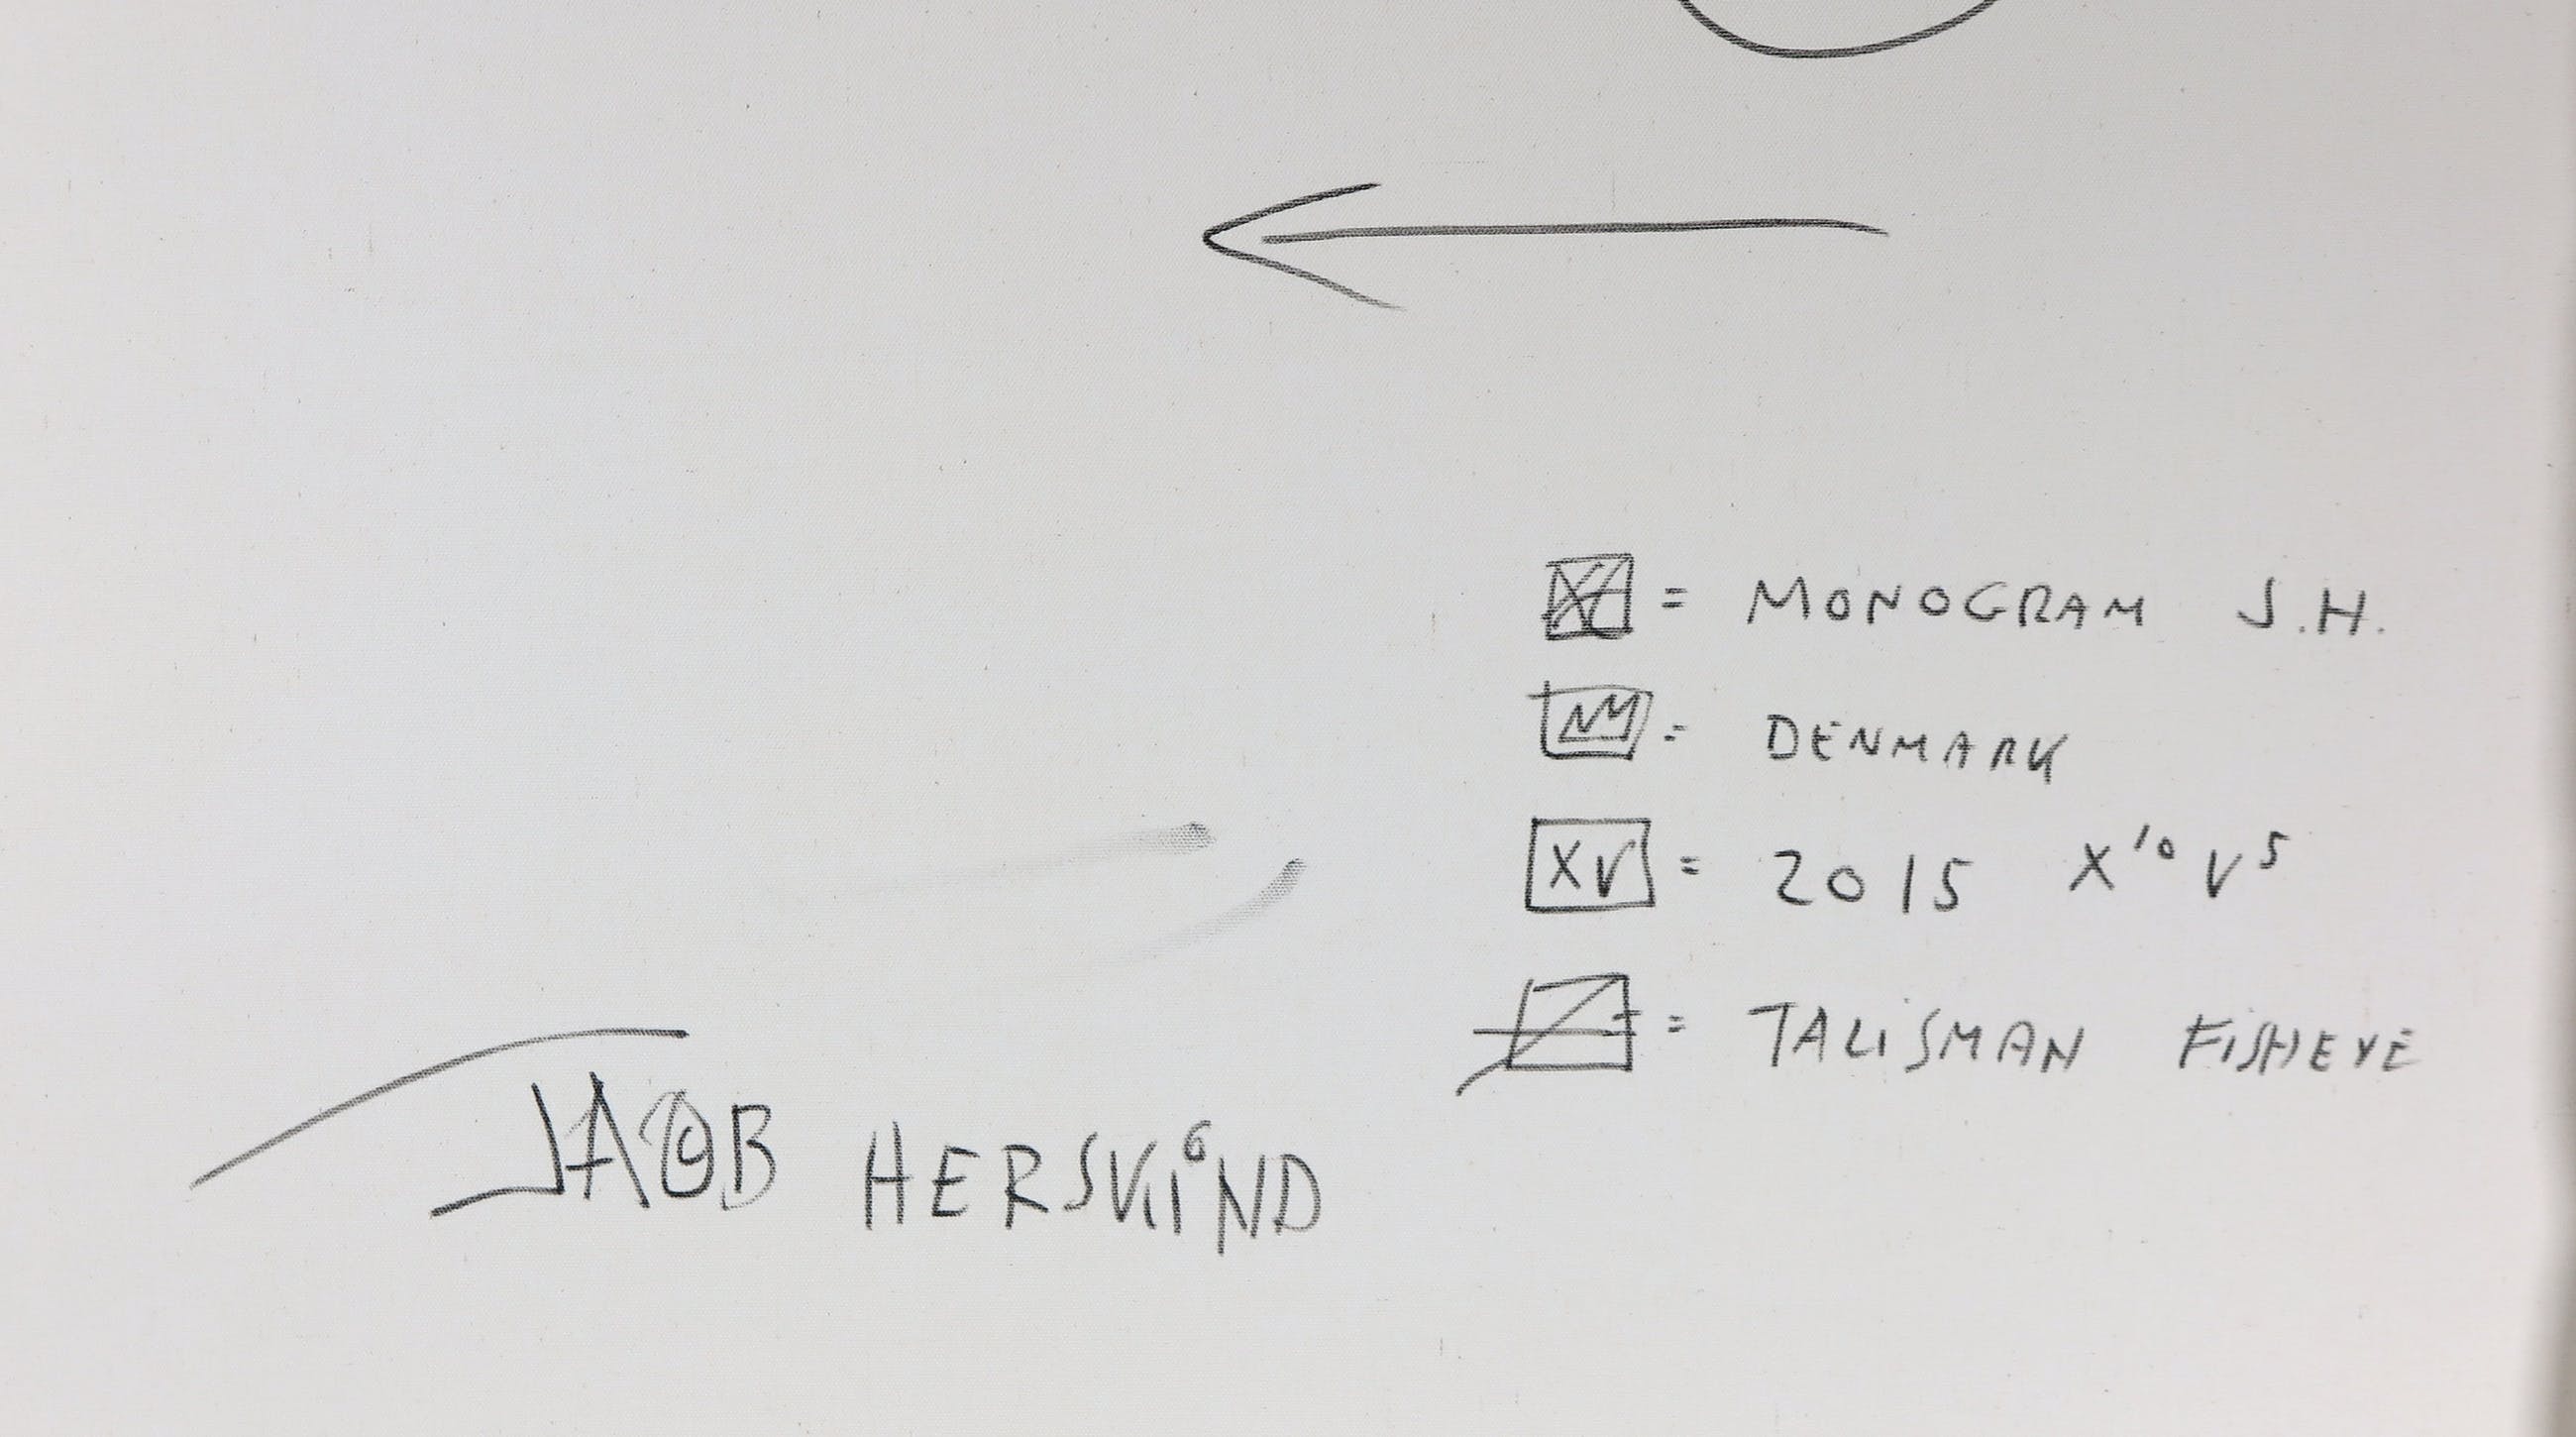 = MONOGRAM J.H.
= DENMARK
XV = 2015 X¹⁰ V⁵
= TALiSMAN FiSHEYE
JACOB HERSKIND